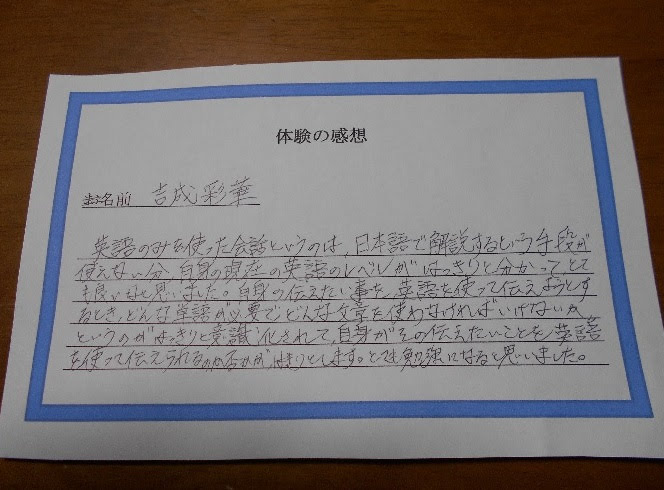 体験の感想
お名前 吉成彩華
英語のみを使った会話というのは、日本語で解説するという手段が
使えない分、自身の現在の英語のレベルがはっきりと分かって、とて
も良いなと思いました。自身の伝えたい事を、英語を使って伝えようとす
るとき、どんな単語が必要で、どんな文章を使わなければいけないか
というのがはっきりと意識化されて、自身がその伝えたいことを英語
を使って伝えられるのか否かが、はっきりとします。とても勉強になると思いました。